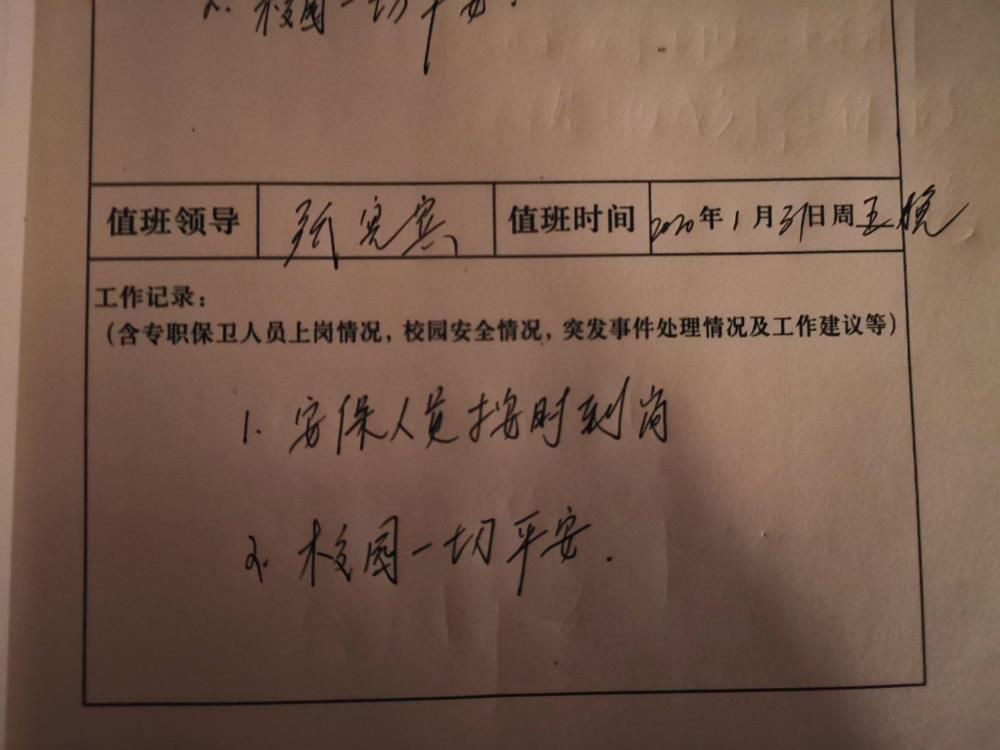 2. 校园一切平安.
值班领导 张宪宾 值班时间 2020年1月31日周五晚
工作记录：
（含专职保卫人员上岗情况，校园安全情况，突发事件处理情况及工作建议等）
1. 安保人员按时到岗
2. 校园一切平安.